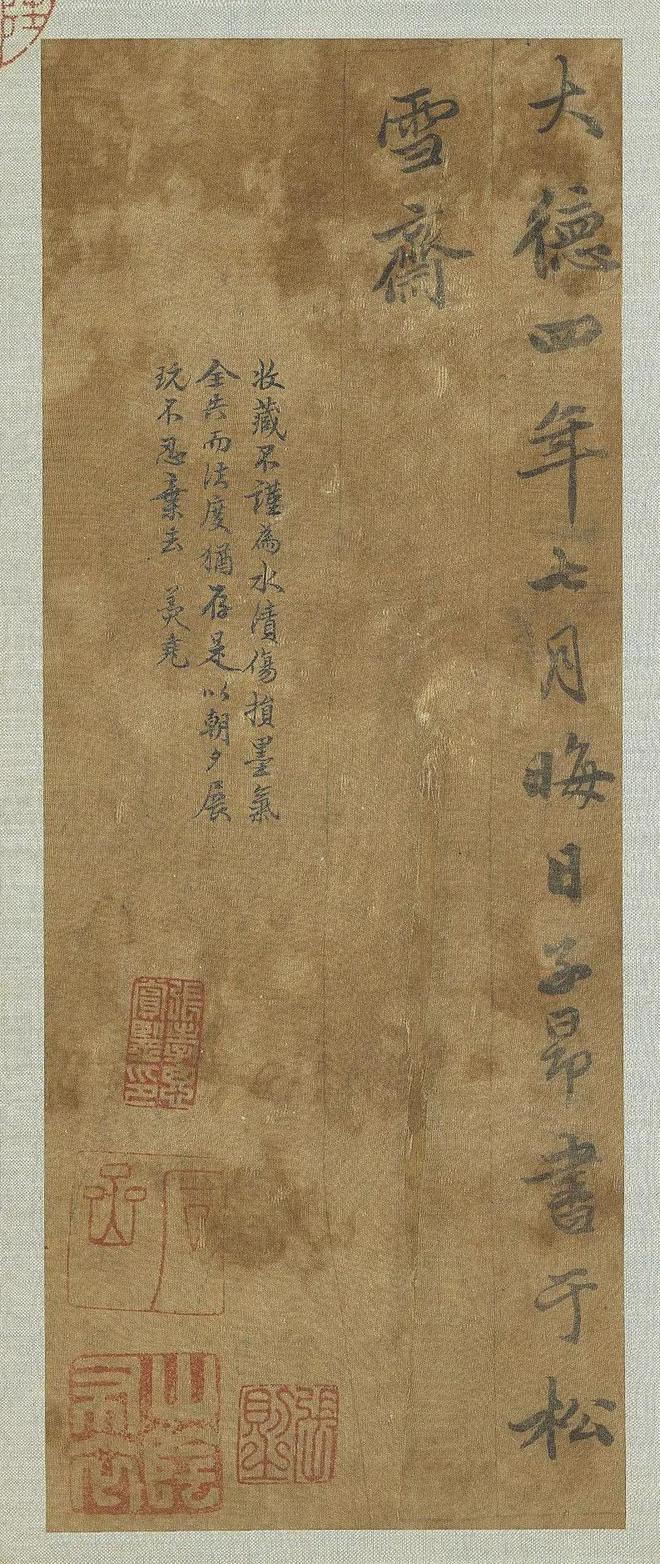 大德四年七月晦日子昂書于松
雪齋
收藏不謹為水漬傷損墨氣
全失而法度猶存是以朝夕展
玩不忍棄去